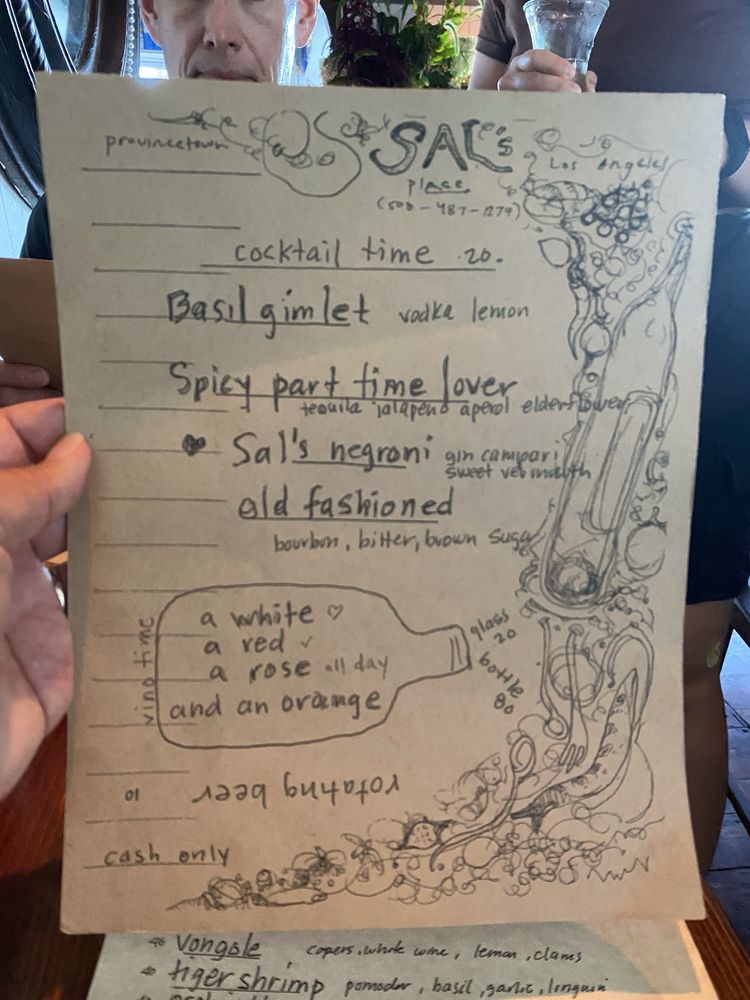 provincetown
SAL's
Los Angeles
place
(508-487-1279)
cocktail time 20.
Basil gimlet vodka lemon
Spicy part time lover
tequila jalapeno aperol elderflower
Sal's negroni gin campari
sweet vermouth
old fashioned
bourbon, bitter, brown suga
vino time
a white ♡
a red ✓
a rose all day
and an orange
glass
20
bottle
80
rotating beer
10
cash only
Vongole capers, white wine, lemon, clams
tiger shrimp pomodor, basil, garlic, linguini